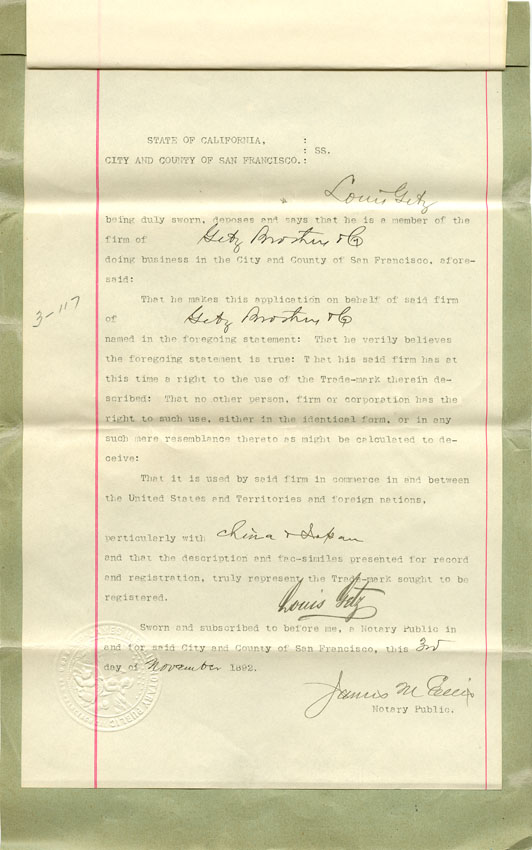 STATE OF CALIFORNIA, :
: SS.
CITY AND COUNTY OF SAN FRANCISCO.:
Louis Getz
being duly sworn, deposes and says that he is a member of the
firm of Getz Brothers & Co
doing business in the City and County of San Francisco, afore-
said:
That he makes this application on behalf of said firm
3-117
of Getz Brothers & Co
named in the foregoing statement: That he verily believes
the foregoing statement is true: T hat his said firm has at
this time a right to the use of the Trade-mark therein de-
scribed: That no other person, firm or corporation has the
right to such use, either in the identical form, or in any
such mere resemblance thereto as might be calculated to de-
ceive:
That it is used by said firm in commerce in and between
the United States and Territories and foreign nations,
particularly with China & Japan
and that the description and fac-similes presented for record
and registration, truly represent the Trade-mark sought to be
registered.
Louis Getz
Sworn and subscribed to before me, a Notary Public in
and for said City and County of San Francisco, this 3rd
day of November 1892.
James M Ellis
Notary Public.
NOTARY PUBLIC